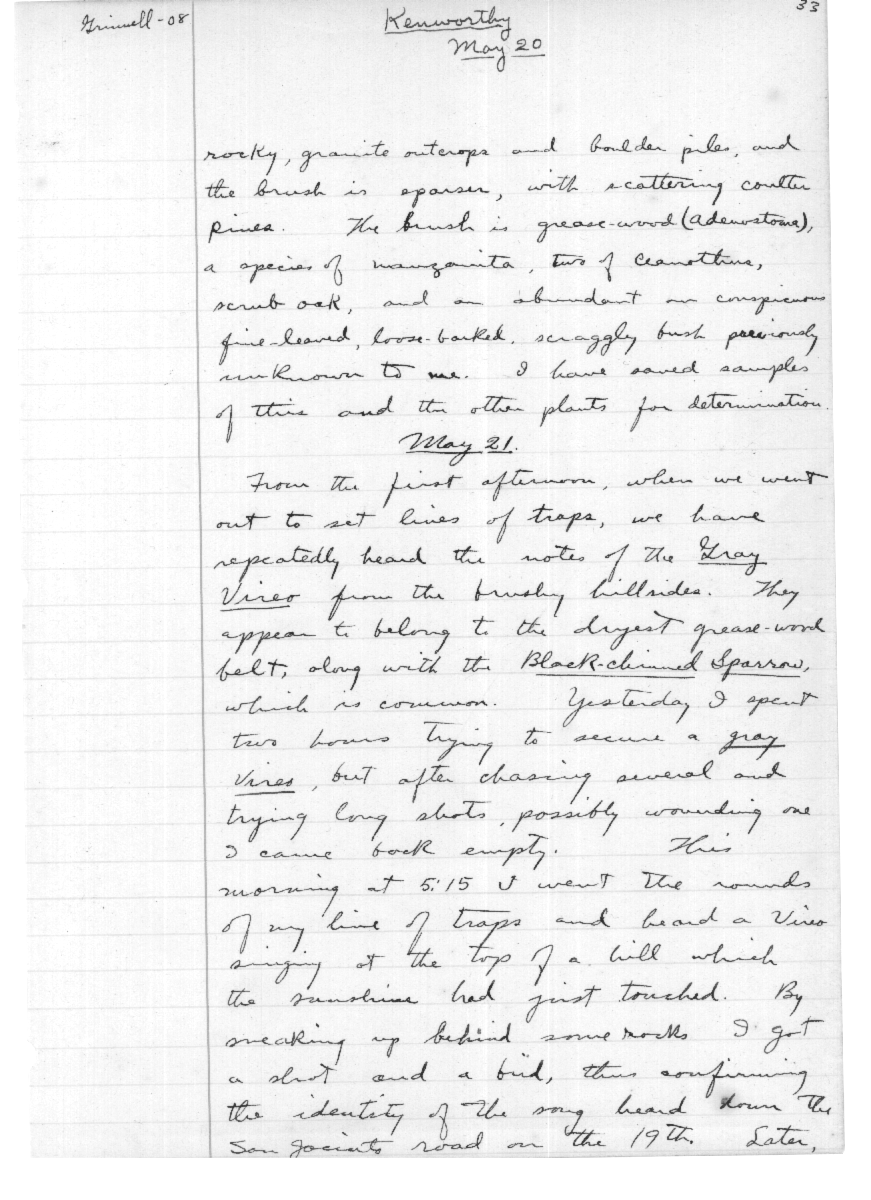 33
Grinnell-08
Kenworthy
May 20
rocky, granite outcrops and boulder piles, and
the brush is sparser, with scattering coulter
pines. The brush is grease-wood (Adenostoma),
a species of manzanita, two of Ceanothus,
scrub oak, and an abundant an conspicuous
fine-leaved, loose-barked, scraggly bush previously
unknown to me. I have saved samples
of this and the other plants for determination.
May 21.
From the first afternoon, when we went
out to set lines of traps, we have
repeatedly heard the notes of the Gray
Vireo from the brushy hillsides. They
appear to belong to the dryest grease-wood
belt, along with the Black-chinned Sparrow,
which is common. Yesterday I spent
two hours trying to secure a gray
vireo, but after chasing several and
trying long shots, possibly wounding one
I came back empty. This
morning at 5:15 I went the rounds
of my line of traps and heard a Vireo
singing at the top of a hill which
the sunshine had just touched. By
sneaking up behind some rocks I got
a shot and a bird, thus confirming
the identity of the song heard down the
San Jacinto road on the 19th. Later,